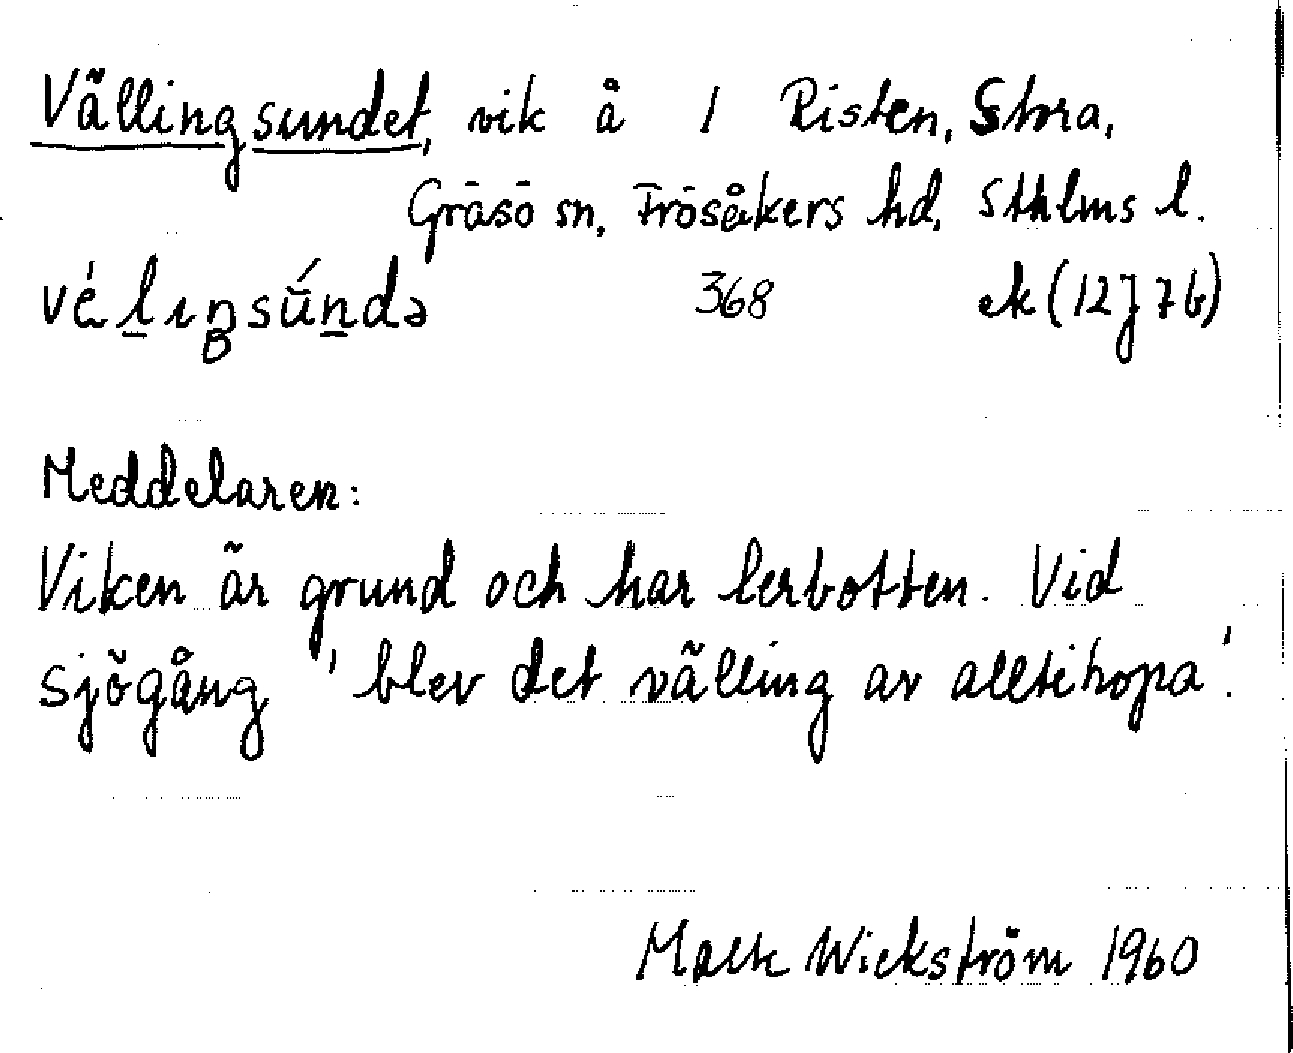 Vällingsundet, vik å 1 Risten, Stora,
Gräsö sn, Frösåkers hd, Sthlms l.
368 ek (12J 7b)
Meddelaren:
Viken är grund och har lerbotten. Vid
sjögång 'blev det välling av alltihopa'.
Wickström 1960